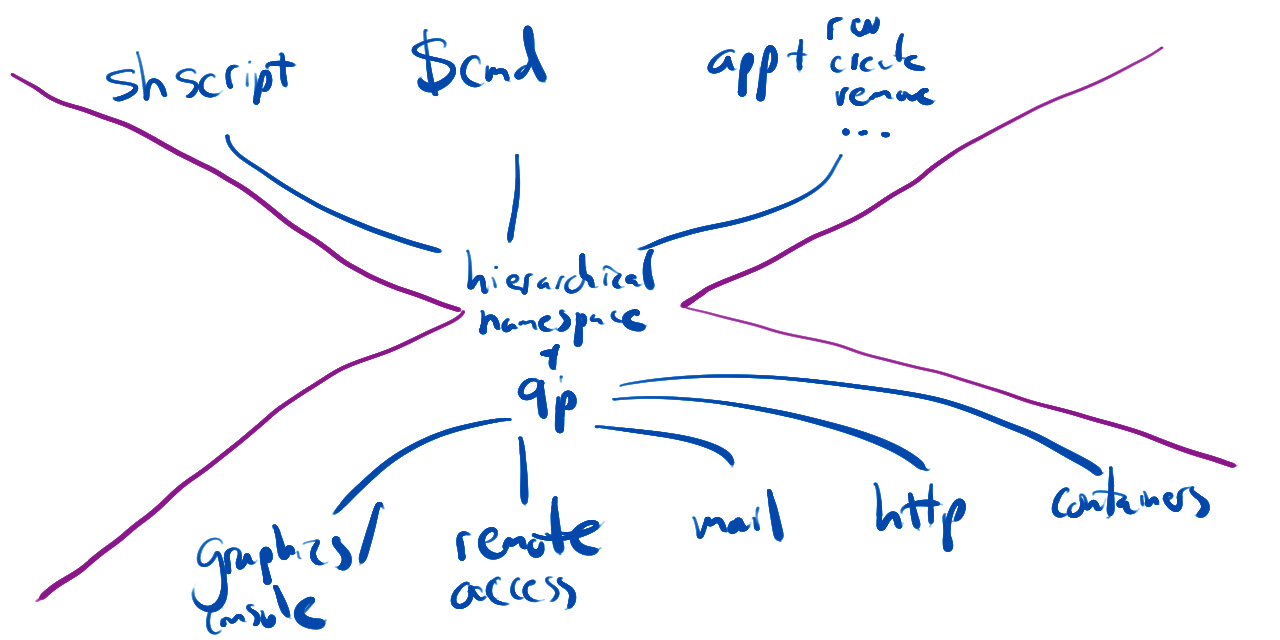 sh script
$cmd
app +
row
create
remove
...
hierarchical
namespace
+
9p
graphics/
console
remote
access
mail
http
containers